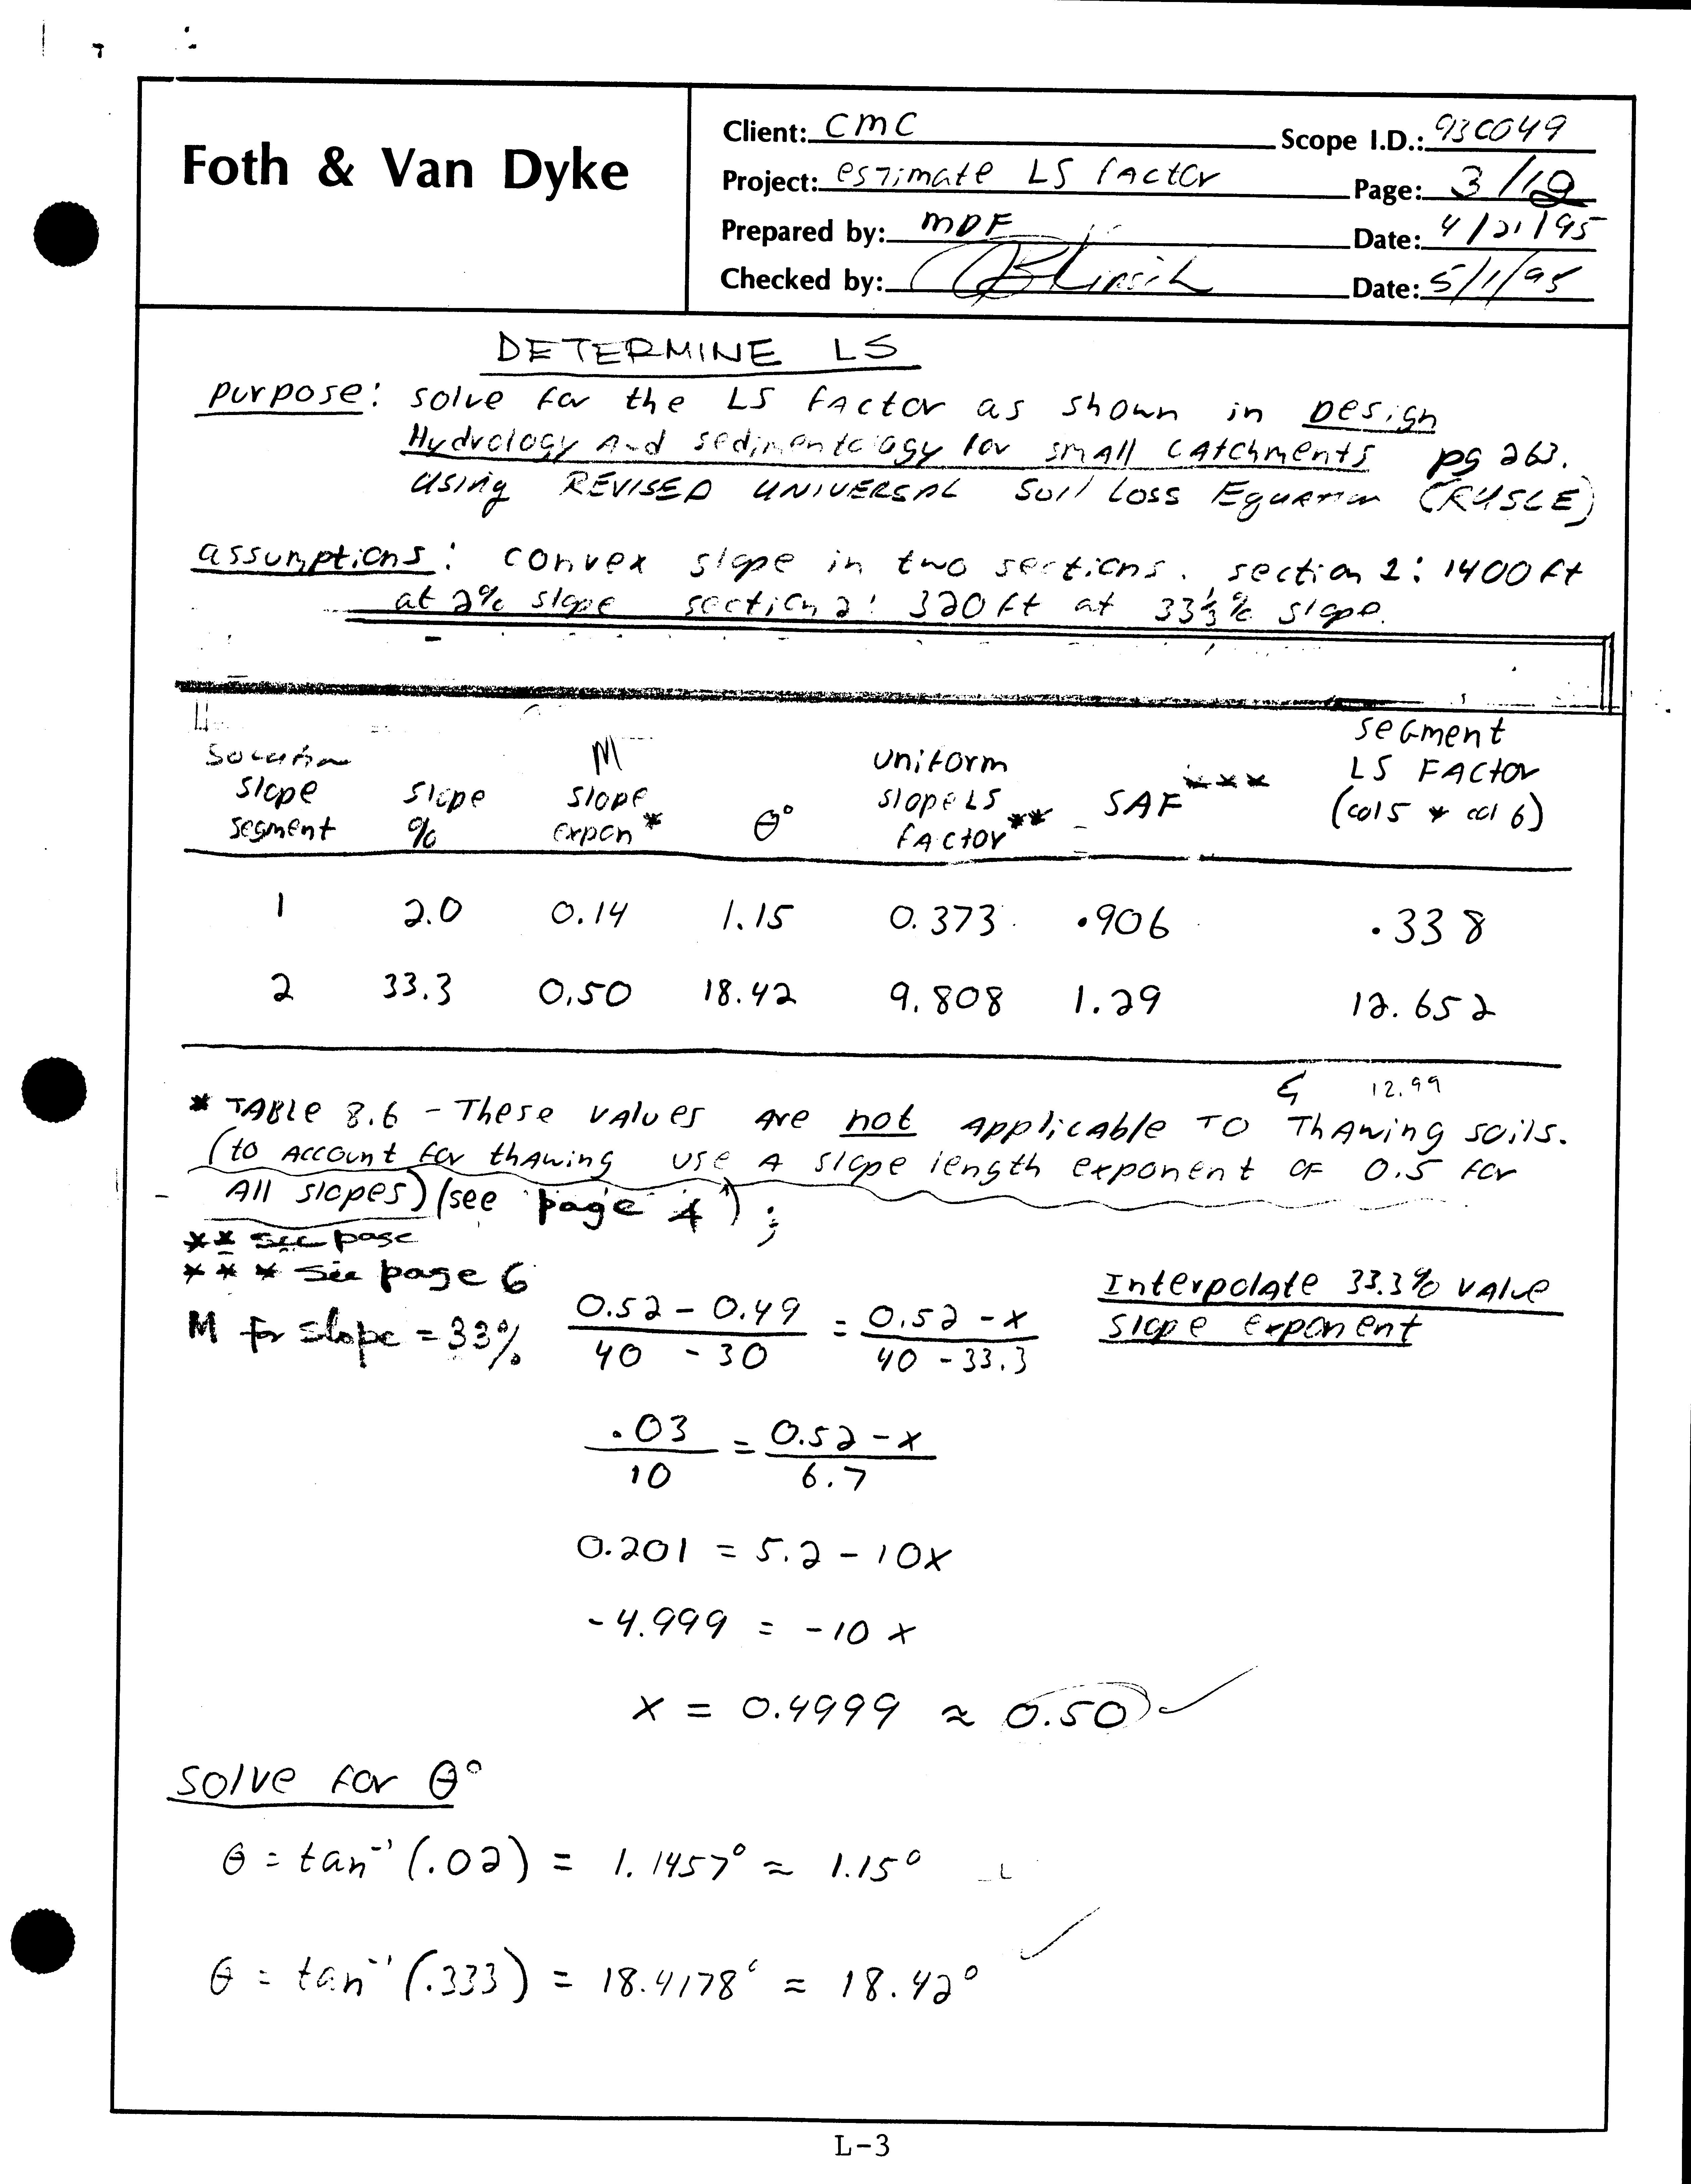 Foth & Van Dyke
Client: CMC
Scope I.D.: 93C049
Project: estimate LS factor
Page: 3/12
Prepared by: MDF
Date: 4/21/95
Checked by:
Date: 5/1/95
DETERMINE LS
purpose: solve for the LS factor as shown in Design
Hydrology and sedimentology for small catchments pg 263.
Using REVISED UNIVERSAL Soil Loss Equation (RUSLE)
assumptions: convex slope in two sections. section 1: 1400 ft
at 2% slope section 2: 320 ft at 33⅓% slope.
Solution
slope segment | slope % | M slope expon* | θ° | uniform slope LS factor** | SAF*** | segment LS FACTOR (col 5 * col 6)
1 2.0 0.14 1.15 0.373 .906 .338
2 33.3 0.50 18.42 9.808 1.29 12.652
Σ 12.99
* TABLE 8.6 - These values are not applicable to Thawing soils.
(to account for thawing use a slope length exponent of 0.5 for
All slopes) (see page 4);
** see page
*** see page 6
M for slope = 33% (0.52 - 0.49)/(40 - 30) = (0.52 - x)/(40 - 33.3)
Interpolate 33.3% value
slope exponent
.03/10 = (0.52 - x)/6.7
0.201 = 5.2 - 10x
-4.999 = -10x
x = 0.4999 ≈ 0.50 ✓
solve for θ°
θ = tan⁻¹(.02) = 1.1457° ≈ 1.15°
θ = tan⁻¹(.333) = 18.4178° ≈ 18.42° ✓
L-3